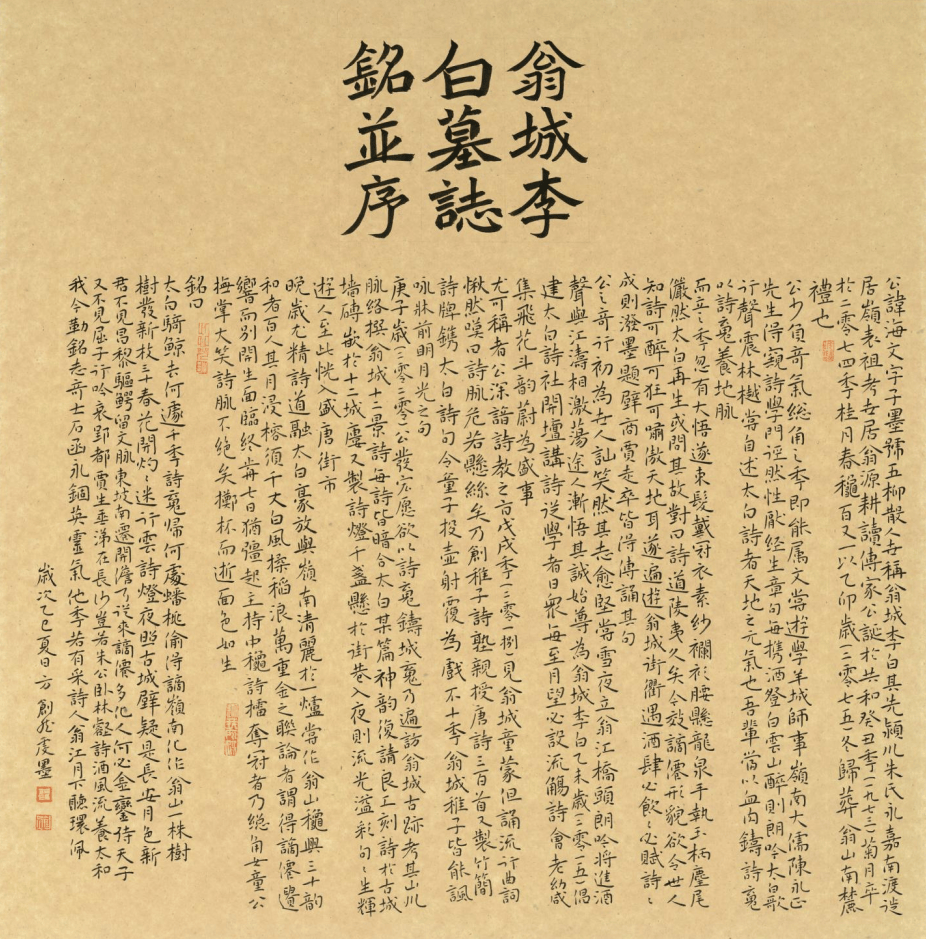 翁城李
白墓誌
銘並序
公諱海文字子墨號五柳散人世稱翁城李白其先潁川朱氏永嘉南渡徙
居嶺表祖考世居翁源耕讀傳家公誕於共和癸丑季一九七三菊月卒
於二零七四季桂月春穐百又一以乙卯歲二零七五冬歸葬翁山南麓
禮也
公少負奇氣総角之季即能属文嘗遊學羊城師事嶺南大儒陳永正
先生得窺詩學門逕然性厭经生章句每携酒登白雲山醉則朗吟太白歌
行聲震林樾嘗自述太白詩者天地之元氣也吾輩當以血肉鑄詩䰟
以詩䰟養地脉
而立之季忽有大悟遂束髮戴冠衣素紗襴衫腰懸龍泉手執玉柄麈尾
儼然太白再生或問其故對曰詩道陵夷久矣今放謫僊形貌欲令世人
知詩可醉可狂可嘯傲天地耳遂遍遊翁城街衢遇酒肆必飲〻必賦詩〻
成則潑墨題壁商賈走卒皆得傳誦其句
公之奇行初為世人訕笑然其志愈堅嘗雪夜立翁江橋頭朗吟將進酒
聲與江濤相激蕩途人漸悟其誠始尊為翁城李白乙未歲二零一五偶
建太白詩社開壇講詩從學者日衆每至月望必設流觴詩會老幼咸
集飛花斗韵蔚為盛事
尤可稱者公深諳詩教之方戊戌季二零一捌見翁城童蒙但誦流行曲詞
愀然嘆曰詩脉危若懸絲矣乃創稚子詩塾親授唐詩三百首又製竹簡
詩牌鐫太白詩句令童子投壺射覆為戲不十季翁城稚子皆能諷
咏牀前明月光之句
庚子歲二零二零公發宏愿欲以詩䰟鑄城䰟乃遍訪翁城古跡考其山川
脉络撰翁城十二景詩每詩皆暗合太白某篇神韵復請良工刻詩於古城
墻磚嵌於十二城䴥又製詩燈千盞懸於街巷入夜則流光溢彩句〻生輝
遊人至此恍入盛唐街市
晚歲尤精詩道融太白豪放與嶺南清麗於一爐嘗作翁山穐興三十韵
和者百人其月浸榕須千丈白風搡稻浪萬重金之聯論者謂得謫僊遺
響而别開生面臨終前七日猶彊起主持中穐詩擂奪冠者乃総角女童公
撫掌大笑詩脉不绝矣擲杯而逝面色如生
銘曰
太白騎鯨去何遽千季詩䰟歸何處蟠桃偷得謫嶺南化作翁山一株樹
樹發新枝三十春花開灼〻迷行雲詩燈夜照古城壁疑是長安月色新
君不見昌黎驅鰐留文脉東坡南遷開儋乃從來謫僊多化人何必金鑾侍天子
又不見屈子行吟哀郢都賈生垂涕在長沙豈若朱公卧林壑詩酒風流養太和
我今勒銘志奇士石函永錮英靈氣他季若有采詩人翁江月下聽環佩
歲次乙巳夏日方創彪虔墨